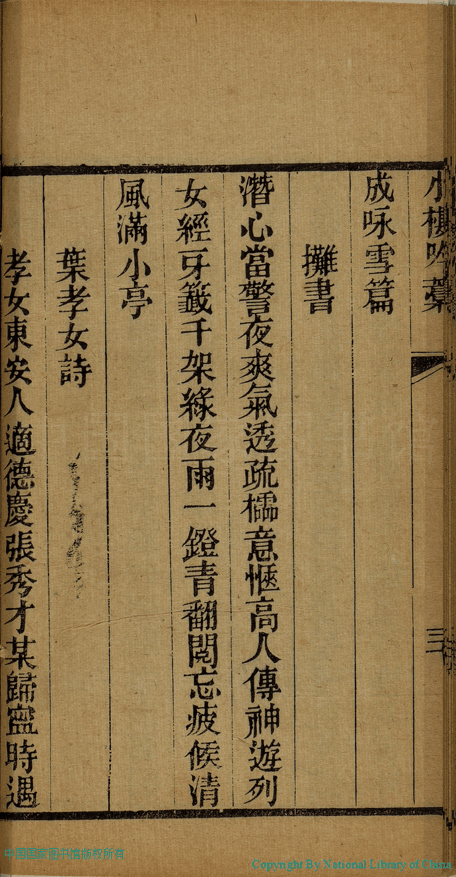 小樓吟藁
三
成咏雪篇
攤書
潛心當警夜爽氣透疏櫺意愜高人傳神遊列
女經牙籤千架綠夜雨一鐙青翻閱忘疲候清
風滿小亭
葉孝女詩
孝女東安人適德慶張秀才某歸寧時遇
中国国家图书馆版权所有
Copyright By National Library of China